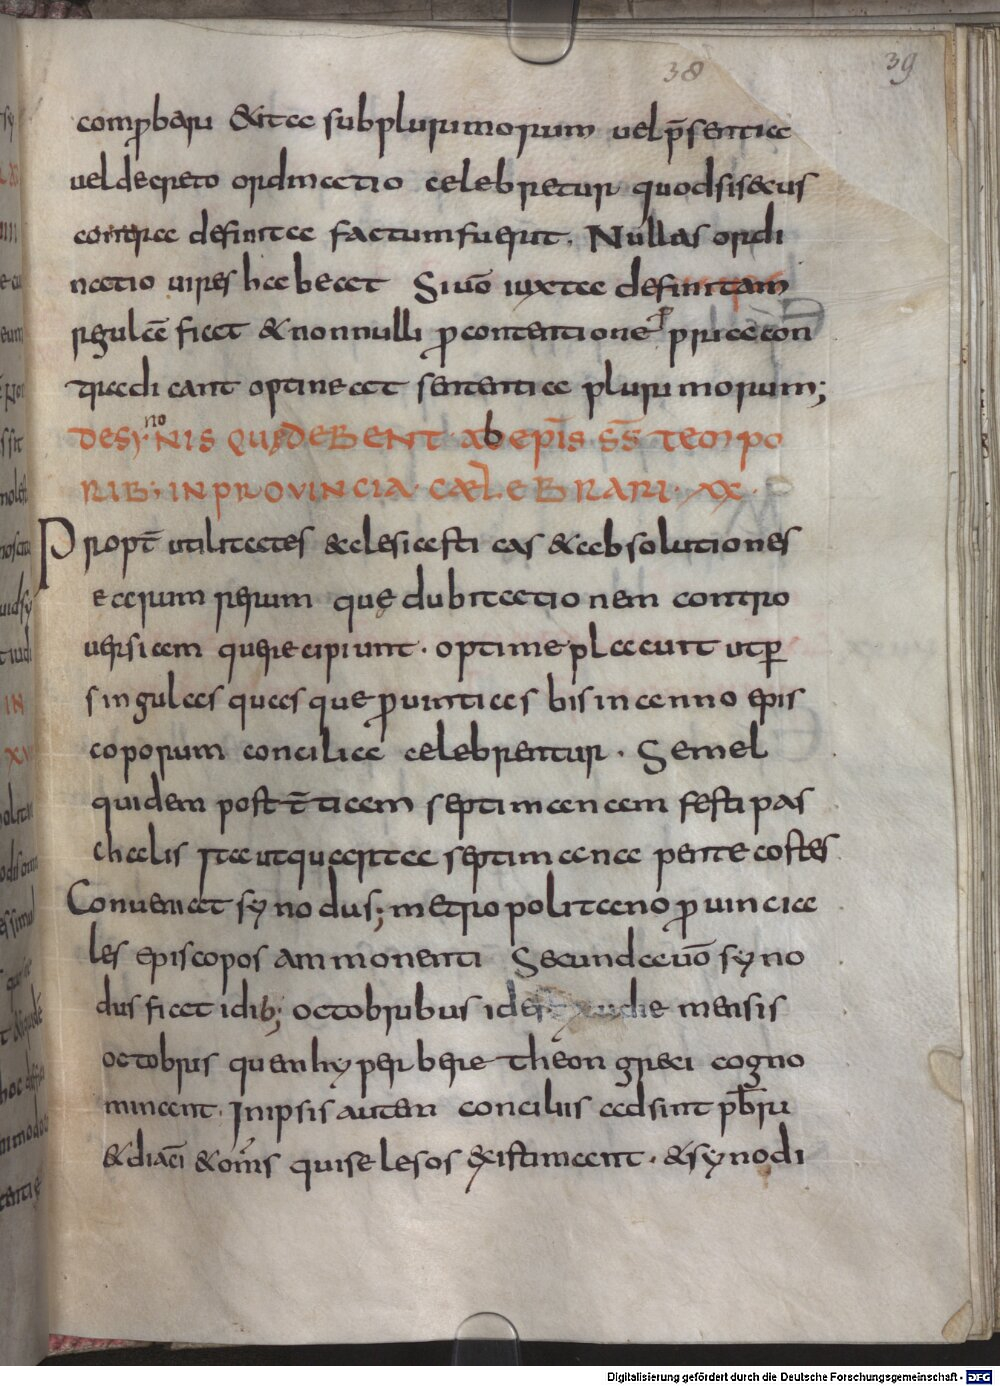 38 39
comꝓbari &ita subplurimorum uelp̄sentia
ueldecreto ordinatio celebretur quodsisecus
contra definita factumfuerit. Nullas ordi
natio uires habeat Siuō iuxta definitam
regulā fiat &nonnulli ꝓcontentione ꝓpria con
tradicant optineat sententia plurimorum;
DESYnoNIS QUĘDEBENT AB EPĪS SS̄ TEMPO
RIB; IN PROVINCIA CÆLEBRARI XX
Propt̄ utilitates &clesiasticas &absolutiones
earum rerum quę dubitationem contro
uersiam querecipiunt. optime placuit utꝑ
singulas quasque ꝓuintias bis in anno epis
coporum concilia celebrentur. Semel
quidem post t̄tiam septimanam festi pas
chalis Ita utquarta septimana pentecostes
Conueniat synodus; metropolitano ꝓuincia
les episcopos ammonenti Secundauō syno
dus fiat idib; octobribus idest die mensis
octobris quem hyperberetheon greci cogno
minant. Inipsis autem conciliis adsint p̄bri
&diac̄i &om̄s quiselesos existimant. &synodi
Digitalisierung gefördert durch die Deutsche Forschungsgemeinschaft - DFG